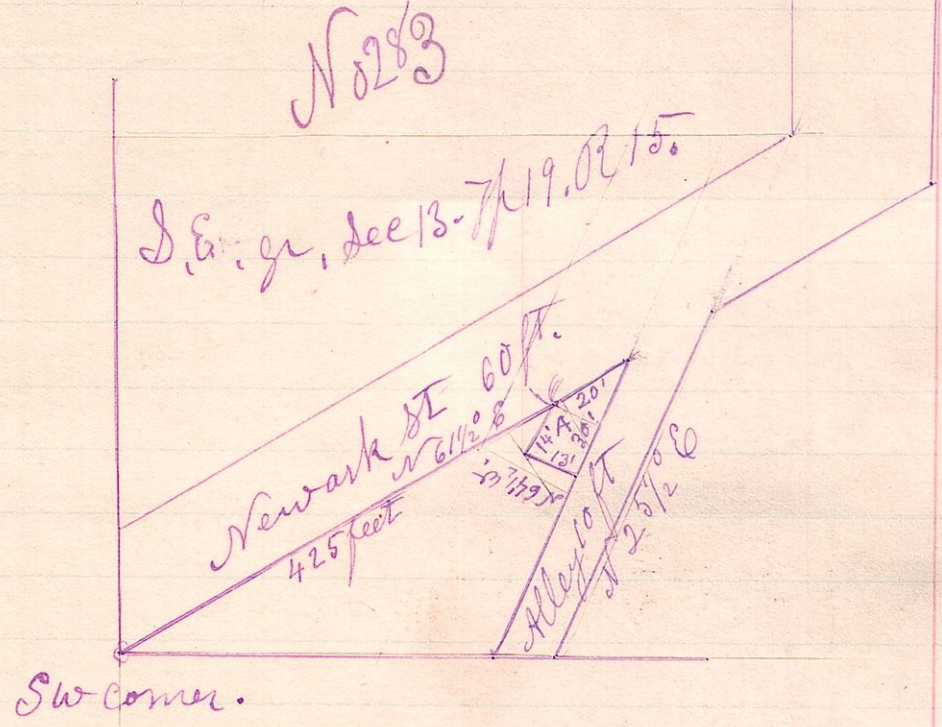 No 283
S.E. qr, Sec 13. Tp 19. R 15.
Newark St 60 ft.
N 61 1/2° E
425 feet
20'
14' A 30'
13'
N 64 1/2 W.
Alley 10 ft
N 25 1/2° E
SW corner.